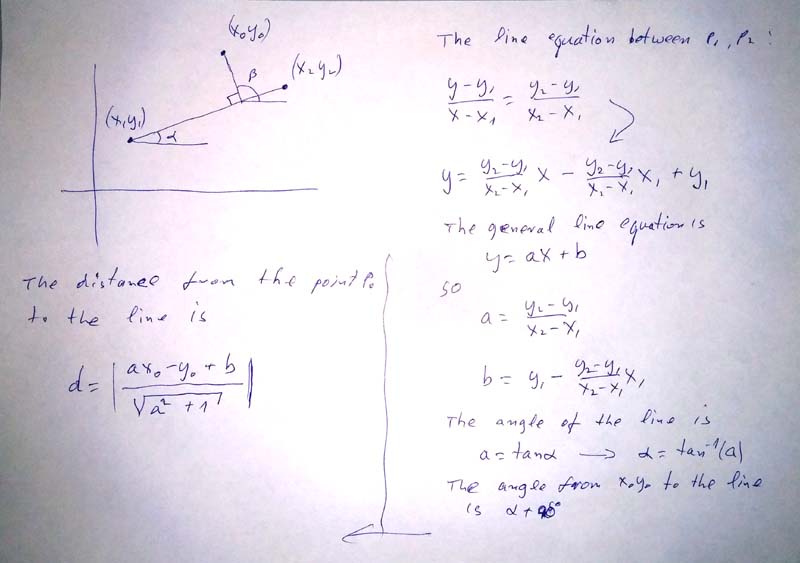 (x₀y₀)
(x₂y₂)
β
(x₁y₁)
α
The line equation between P₁, P₂:
(y-y₁)/(x-x₁) = (y₂-y₁)/(x₂-x₁)
y = (y₂-y₁)/(x₂-x₁) x - (y₂-y₁)/(x₂-x₁) x₁ + y₁
The general line equation is
y = ax + b
so
a = (y₂-y₁)/(x₂-x₁)
b = y₁ - (y₂-y₁)/(x₂-x₁) x₁
The angle of the line is
a = tanα → α = tan⁻¹(a)
The angle from x₀y₀ to the line
is α + 90°
The distance from the point P₀
to the line is
d = |(ax₀ - y₀ + b)/√(a² + 1)|